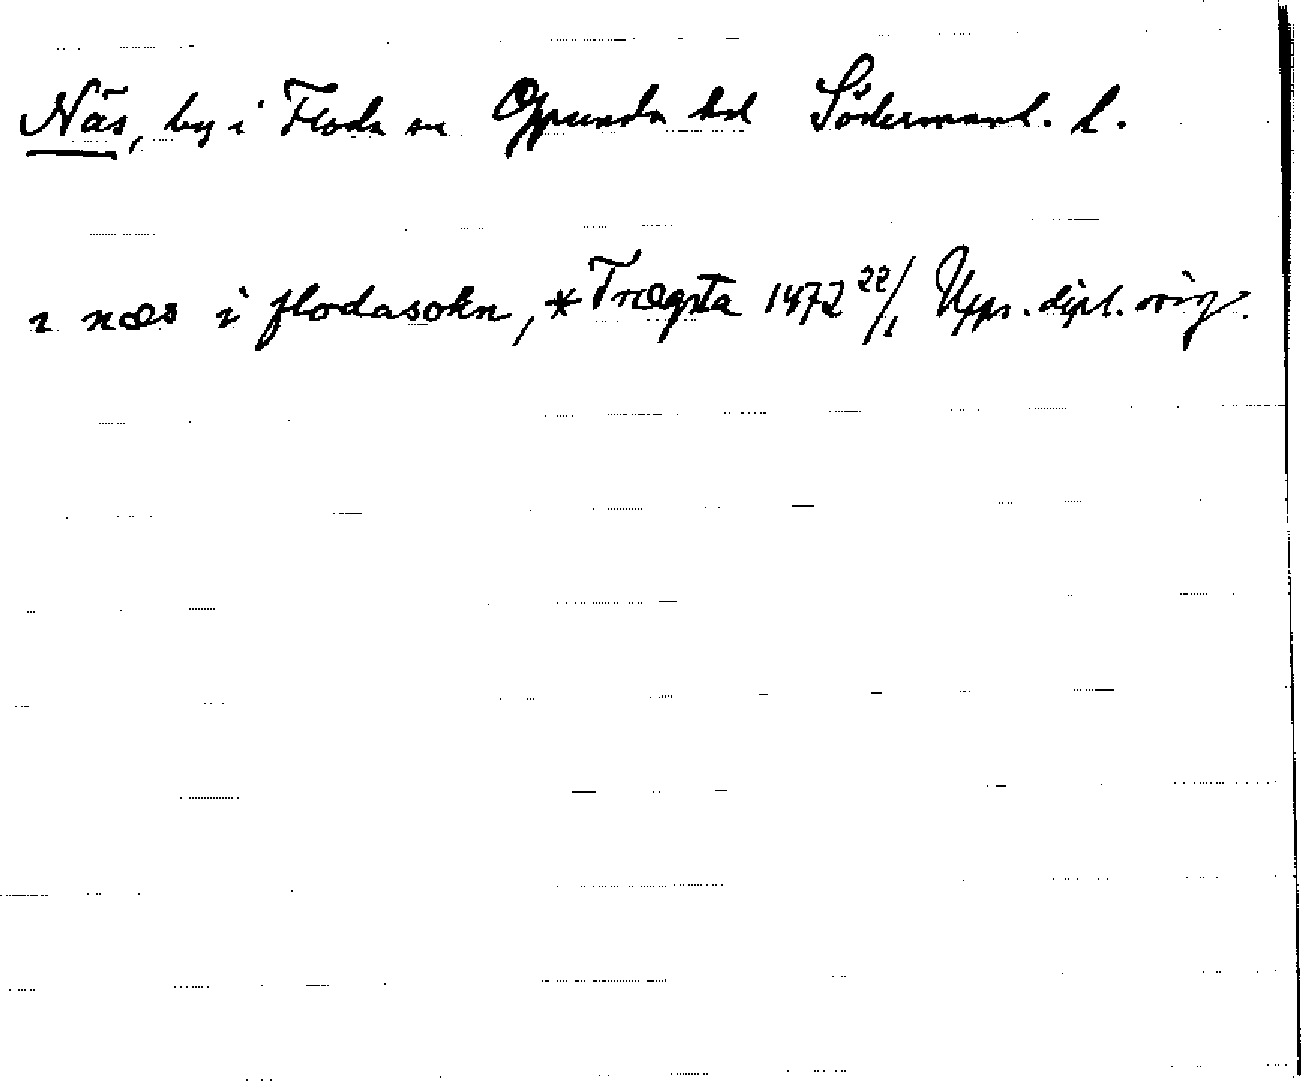 Näs, by i Floda sn Oppunda hd Södermanl. l.
ı næs i flodasokn, *Trægsta 1472 22/1 Upps. dipl. orig.